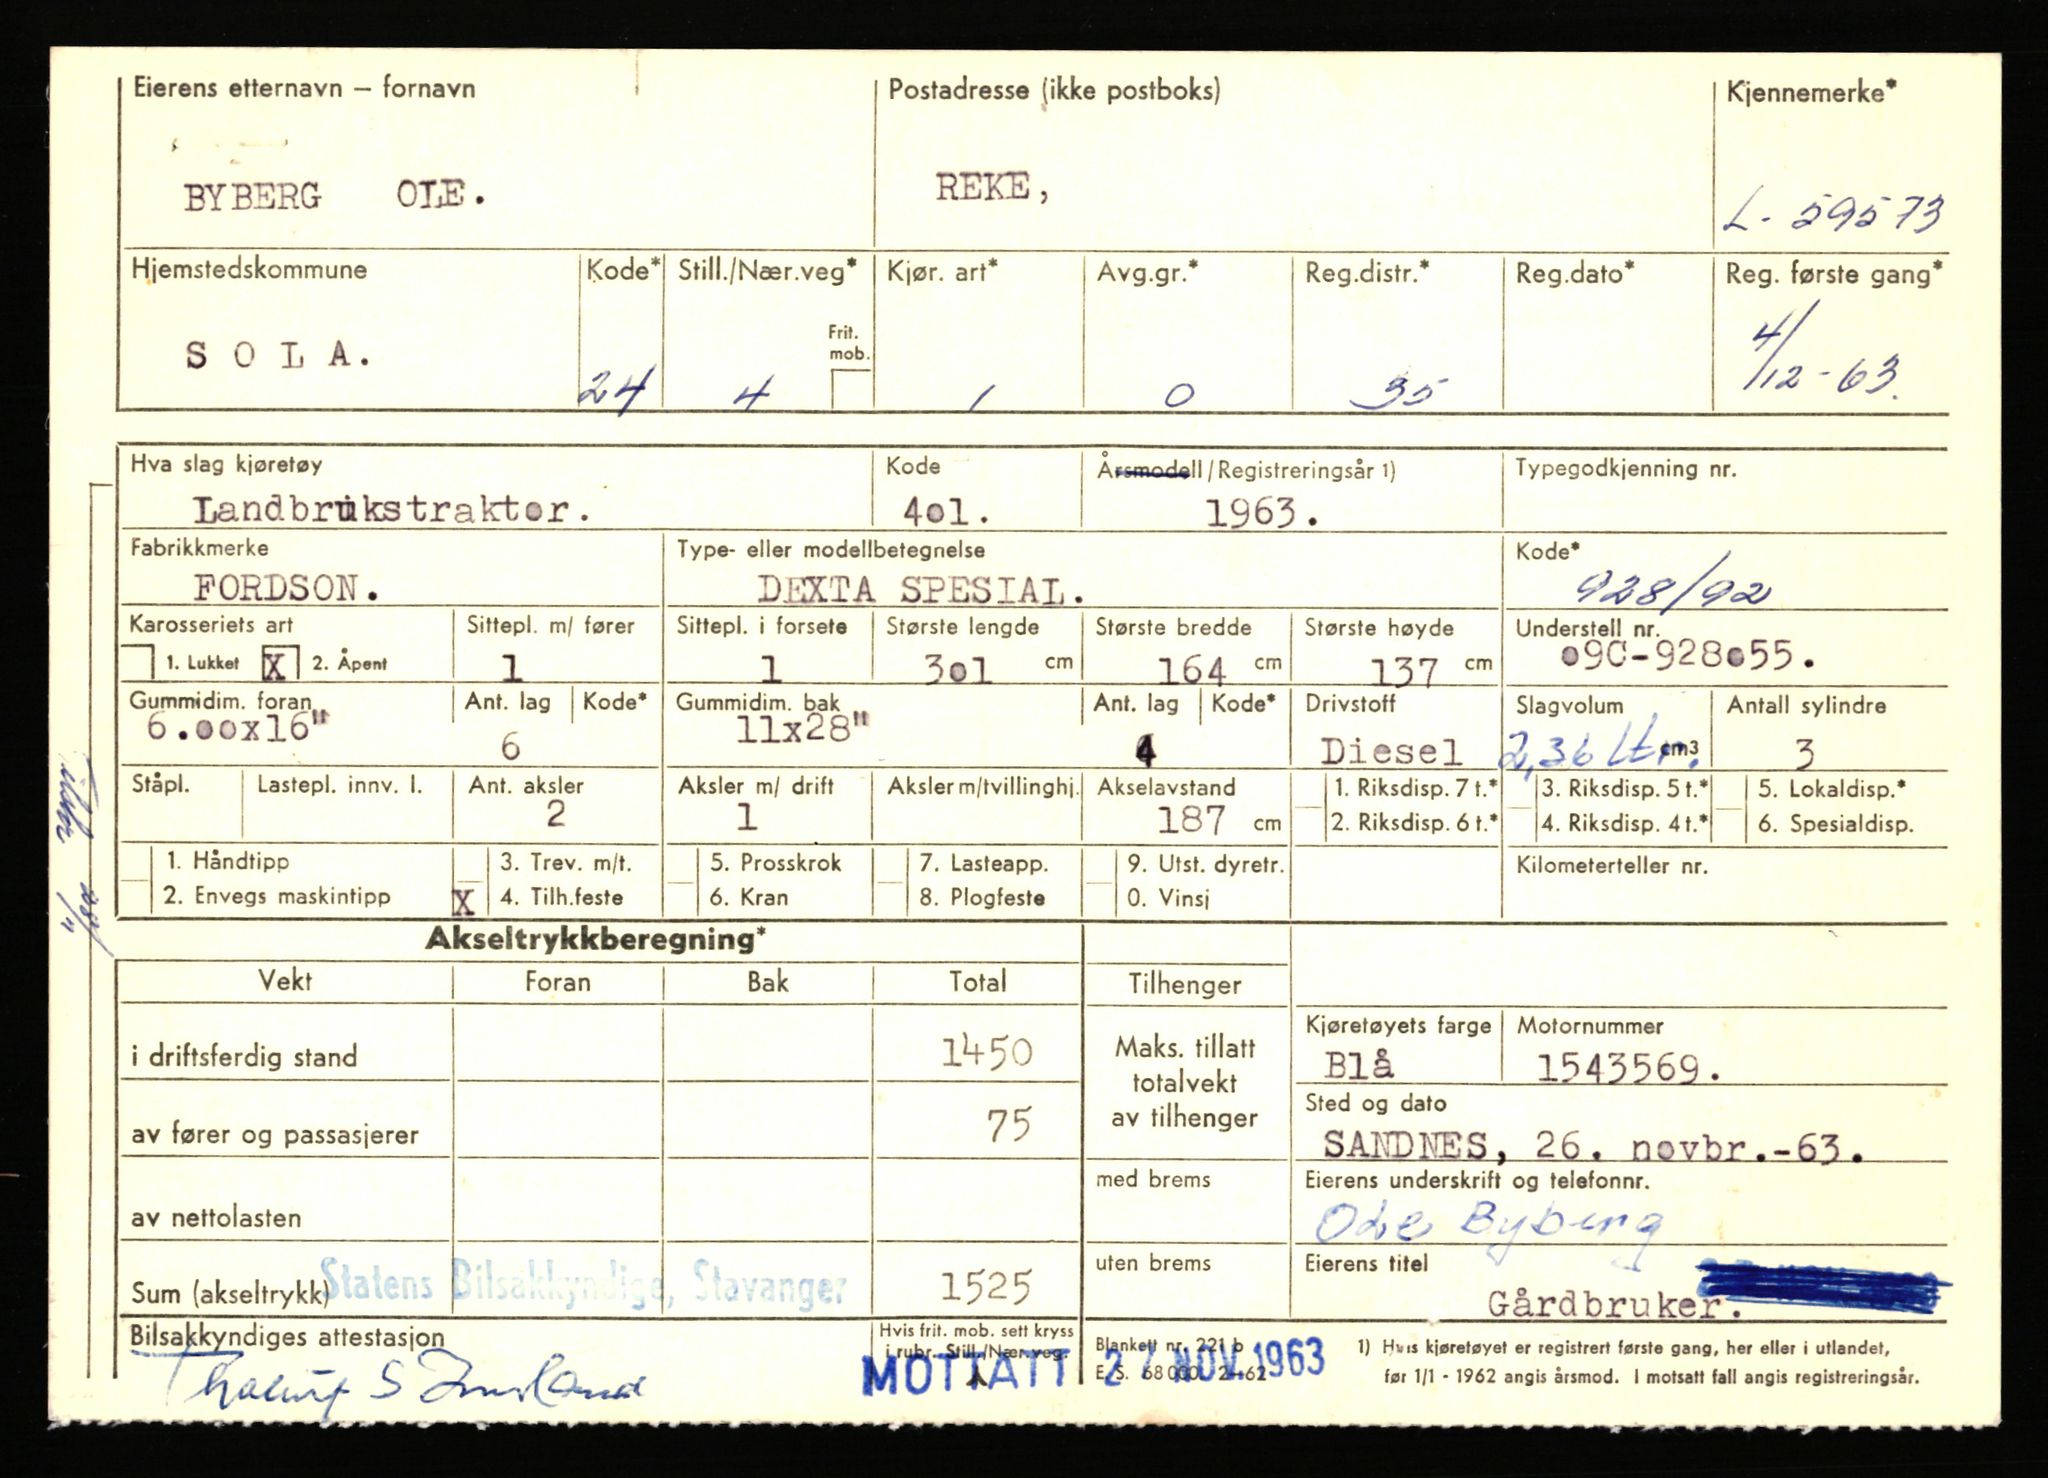 Eierens etternavn – fornavn Postadresse (ikke postboks) Kjennemerke*
BYBERG OLE. REKE, L- 59573
Hjemstedskommune Kode* Still./Nær.veg* Kjør. art* Avg.gr.* Reg.distr.* Reg.dato* Reg. første gang*
Frit.
mob.
SOLA. 24 4 1 0 35 4/12-63.
Hva slag kjøretøy Kode Årsmodell/Registreringsår 1) Typegodkjenning nr.
Landbrukstraktor. 4o1. 1963.
Fabrikkmerke Type- eller modellbetegnelse Kode*
FORDSON. DEXTA SPESIAL. 928/92
Karosseriets art Sittepl. m/ fører Sittepl. i forsete Største lengde Største bredde Største høyde Understell nr.
1. Lukket X 2. Åpent 1 1 3o1 cm 164 cm 137 cm o9C-928o55.
Gummidim. foran Ant. lag Kode* Gummidim. bak Ant. lag Kode* Drivstoff Slagvolum Antall sylindre
6.oox16" 6 11x28" 4 Diesel 2,36 Ltr. cm3 3
Ståpl. Lastepl. innv. l. Ant. aksler Aksler m/ drift Aksler m/tvillinghj. Akselavstand 1. Riksdisp. 7 t.* 3. Riksdisp. 5 t.* 5. Lokaldisp.*
2 1 187 cm 2. Riksdisp. 6 t.* 4. Riksdisp. 4 t.* 6. Spesialdisp.
1. Håndtipp 3. Trev. m/t. 5. Prosskrok 7. Lasteapp. 9. Utst. dyretr. Kilometerteller nr.
2. Envegs maskintipp X 4. Tilh.feste 6. Kran 8. Plogfeste 0. Vinsj
Akseltrykkberegning*
Vekt Foran Bak Total Tilhenger
Kjøretøyets farge Motornummer
i driftsferdig stand 1450 Maks. tillatt totalvekt av tilhenger Blå 1543569.
Sted og dato
av fører og passasjerer 75 SANDNES, 26. novbr.-63.
med brems Eierens underskrift og telefonnr.
av nettolasten Ole Byberg
uten brems Eierens titel
Sum (akseltrykk) Statens Bilsakkyndige, Stavanger 1525 Gårdbruker.
Bilsakkyndiges attestasjon Hvis frit. mob. sett kryss i rubr. Still./Nær.veg. Blankett nr. 221 b 1) Hvis kjøretøyet er registrert første gang, her eller i utlandet,
MOTTATT 27 NOV. 1963 E. S. 68000. 2-62 før 1/1 - 1962 angis årsmod. I motsatt fall angis registreringsår.